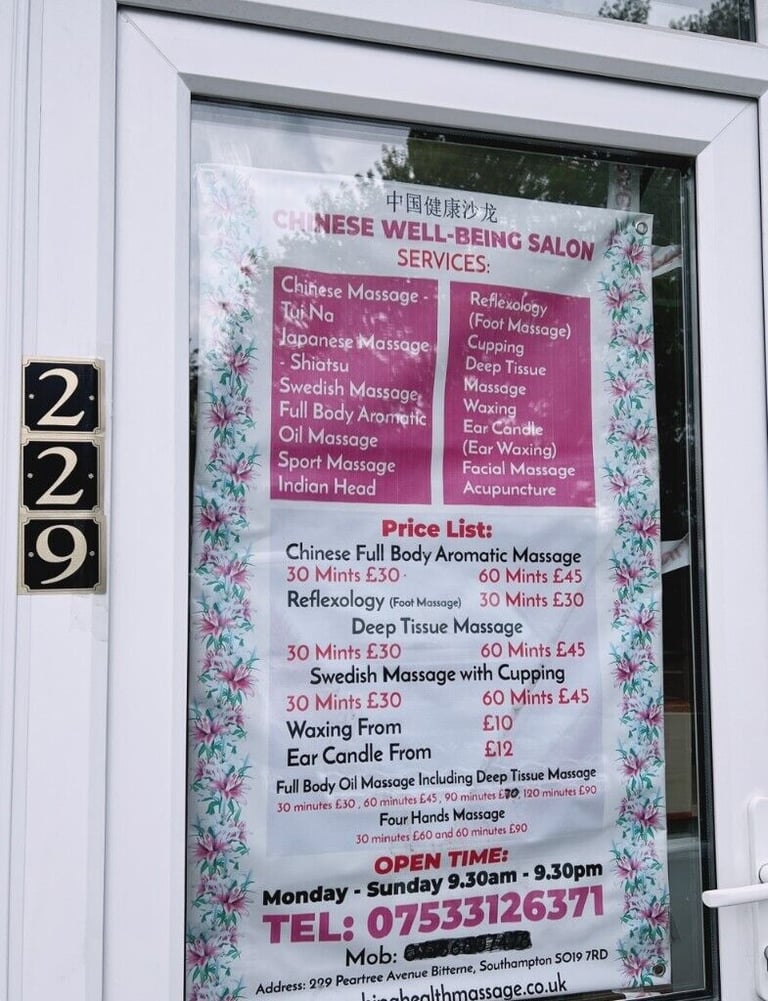 2
2
9
中国健康沙龙
CHINESE WELL-BEING SALON
SERVICES:
Chinese Massage -
Tui Na
Japanese Massage
- Shiatsu
Swedish Massage
Full Body Aromatic
Oil Massage
Sport Massage
Indian Head
Reflexology
(Foot Massage)
Cupping
Deep Tissue
Massage
Waxing
Ear Candle
(Ear Waxing)
Facial Massage
Acupuncture
Price List:
Chinese Full Body Aromatic Massage
30 Mints £30 60 Mints £45
Reflexology (Foot Massage) 30 Mints £30
Deep Tissue Massage
30 Mints £30 60 Mints £45
Swedish Massage with Cupping
30 Mints £30 60 Mints £45
Waxing From £10
Ear Candle From £12
Full Body Oil Massage Including Deep Tissue Massage
30 minutes £30, 60 minutes £45, 90 minutes £70, 120 minutes £90
Four Hands Massage
30 minutes £60 and 60 minutes £90
OPEN TIME:
Monday - Sunday 9.30am - 9.30pm
TEL: 07533126371
Mob:
Address: 229 Peartree Avenue Bitterne, Southampton SO19 7RD